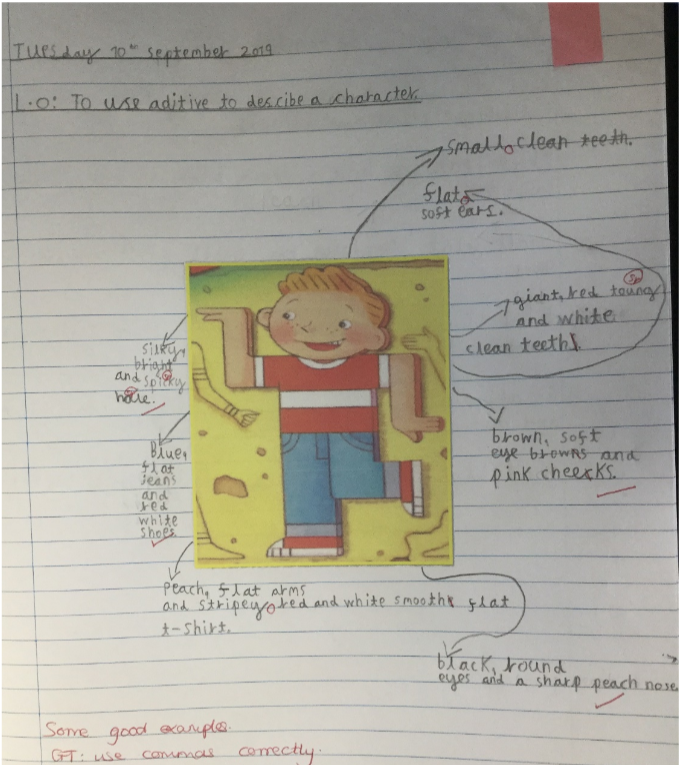 Tuesday 10th september 2019
L.O: To use aditive to descibe a character.
small, clean teeth.
flat,
soft ears.
giant, red toung
and white
clean teeth!
silky,
bright
and spicky
haire.
Blue,
flat
jeans
and
red
white
shoes.
brown, soft
eye browns and
pink cheeks.
Peach, flat arms
and stripey, red and white smooth flat
t-shirt.
black, round
eyes and a sharp peach nose
Some good examples.
GT: use commas correctly.